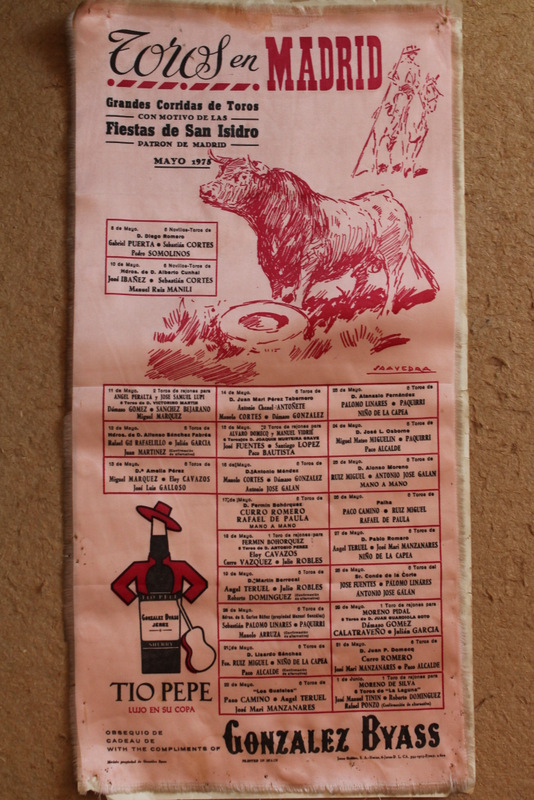 Toros en MADRID
Grandes Corridas de Toros
CON MOTIVO DE LAS
Fiestas de San Isidro
PATRON DE MADRID
MAYO 1975
SAAVEDRA
6 Novillos-Toros de
D. Diego Romero
Gabriel PUERTA • Sebastián CORTES
Pedro SOMOLINOS
10 de Mayo. 6 Novillos-Toros de
Hdros. de D. Alberto Cunhal
José IBAÑEZ • Sebastián CORTES
Manuel Ruiz MANILI
11 de Mayo. 2 Toros de rejones para
ANGEL PERALTA y JOSE SAMUEL LUPI
6 Toros de D. VICTORINO MARTIN
Dámaso GOMEZ • SANCHEZ BEJARANO
Miguel MARQUEZ
12 de Mayo. 6 Toros de
Hdros. de D. Alfonso Sánchez Fabrés
Rafael GU RAFAELILLO • Julián GARCIA
Juan MARTINEZ (Confirmación de alternativa)
13 de Mayo. 6 Toros de
D.ª Amelia Pérez
Miguel MARQUEZ • Eloy CAVAZOS
José Luis GALLOSO
14 de Mayo. 6 Toros de
D. Juan Mari Pérez Tabernero
Antonio Chenel ANTOÑETE
Manolo CORTES • Dámaso GONZALEZ
15 de Mayo. 2 Toros de rejones para
ALVARO DOMECQ y MANUEL VIDRIÉ
6 Torrejos D. JOAQUIN MURTEIRA GRAVE
José FUENTES • Santiago LOPEZ
Paco BAUTISTA
16 de Mayo. 6 Toros de
D. Antonio Méndez
Manolo CORTES • Dámaso GONZALEZ
Antonio JOSE GALAN
17 de Mayo. 6 Toros de
D. Fermín Bohórquez
CURRO ROMERO
RAFAEL DE PAULA
MANO A MANO
18 de Mayo. 1 Toro de rejones para
FERMIN BOHORQUEZ
6 Toros de D. ANTONIO PEREZ
Eloy CAVAZOS
Curro VAZQUEZ • Julio ROBLES
6 Toros de
D. Martín Berrocal
Angel TERUEL • Julio ROBLES
Roberto DOMINGUEZ (Confirmación de alternativa)
20 de Mayo. 6 Toros de
Hdros. de D. Carlos Núñez (propiedad Manuel González)
Sebastián PALOMO LINARES • PAQUIRRI
Manolo ARRUZA (Confirmación de alternativa)
21 de Mayo. 6 Toros de
D. Lisardo Sánchez
Fco. RUIZ MIGUEL • NIÑO DE LA CAPEA
Paco ALCALDE (Confirmación de alternativa)
22 de Mayo. 6 Toros de
"Los Guateles"
Paco CAMINO • Angel TERUEL
José Mari MANZANARES
6 Toros de
D. Atanasio Fernández
PALOMO LINARES • PAQUIRRI
NIÑO DE LA CAPEA
24 de Mayo. 6 Toros de
D. José L. Osborne
Miguel Mateo MIGUELIN • PAQUIRRI
Paco ALCALDE
6 Toros de
D. Alonso Moreno
RUIZ MIGUEL • ANTONIO JOSE GALAN
MANO A MANO
26 de Mayo. 6 Toros de
Palha
PACO CAMINO • RUIZ MIGUEL
RAFAEL DE PAULA
27 de Mayo. 6 Toros de
D. Pablo Romero
Angel TERUEL • José Mari MANZANARES
NIÑO DE LA CAPEA
6 Toros del
Sr. Conde de la Corte
JOSE FUENTES • PALOMO LINARES
ANTONIO JOSE GALAN
1 Toro de rejones para
MORENO PIDAL
6 Toros de D. JUAN GUARDIOLA SOTO
Dámaso GOMEZ
CALATRAVEÑO • Julián GARCIA
6 Toros de
D. Juan P. Domecq
Curro ROMERO
José Mari MANZANARES • Paco ALCALDE
1 de Junio. 1 Toro de rejones para
MORENO DE SILVA
6 Toros de "La Laguna"
José Manuel TININ • Roberto DOMINGUEZ
Rafael PONZO (Confirmación de alternativa)
TIO PEPE
GONZALEZ BYASS
JEREZ
SHERRY
TIO PEPE
LUJO EN SU COPA
OBSEQUIO DE
CADEAU DE
WITH THE COMPLIMENTS OF
GONZALEZ BYASS
Modelo propiedad de González Byass
PRINTED IN SPAIN